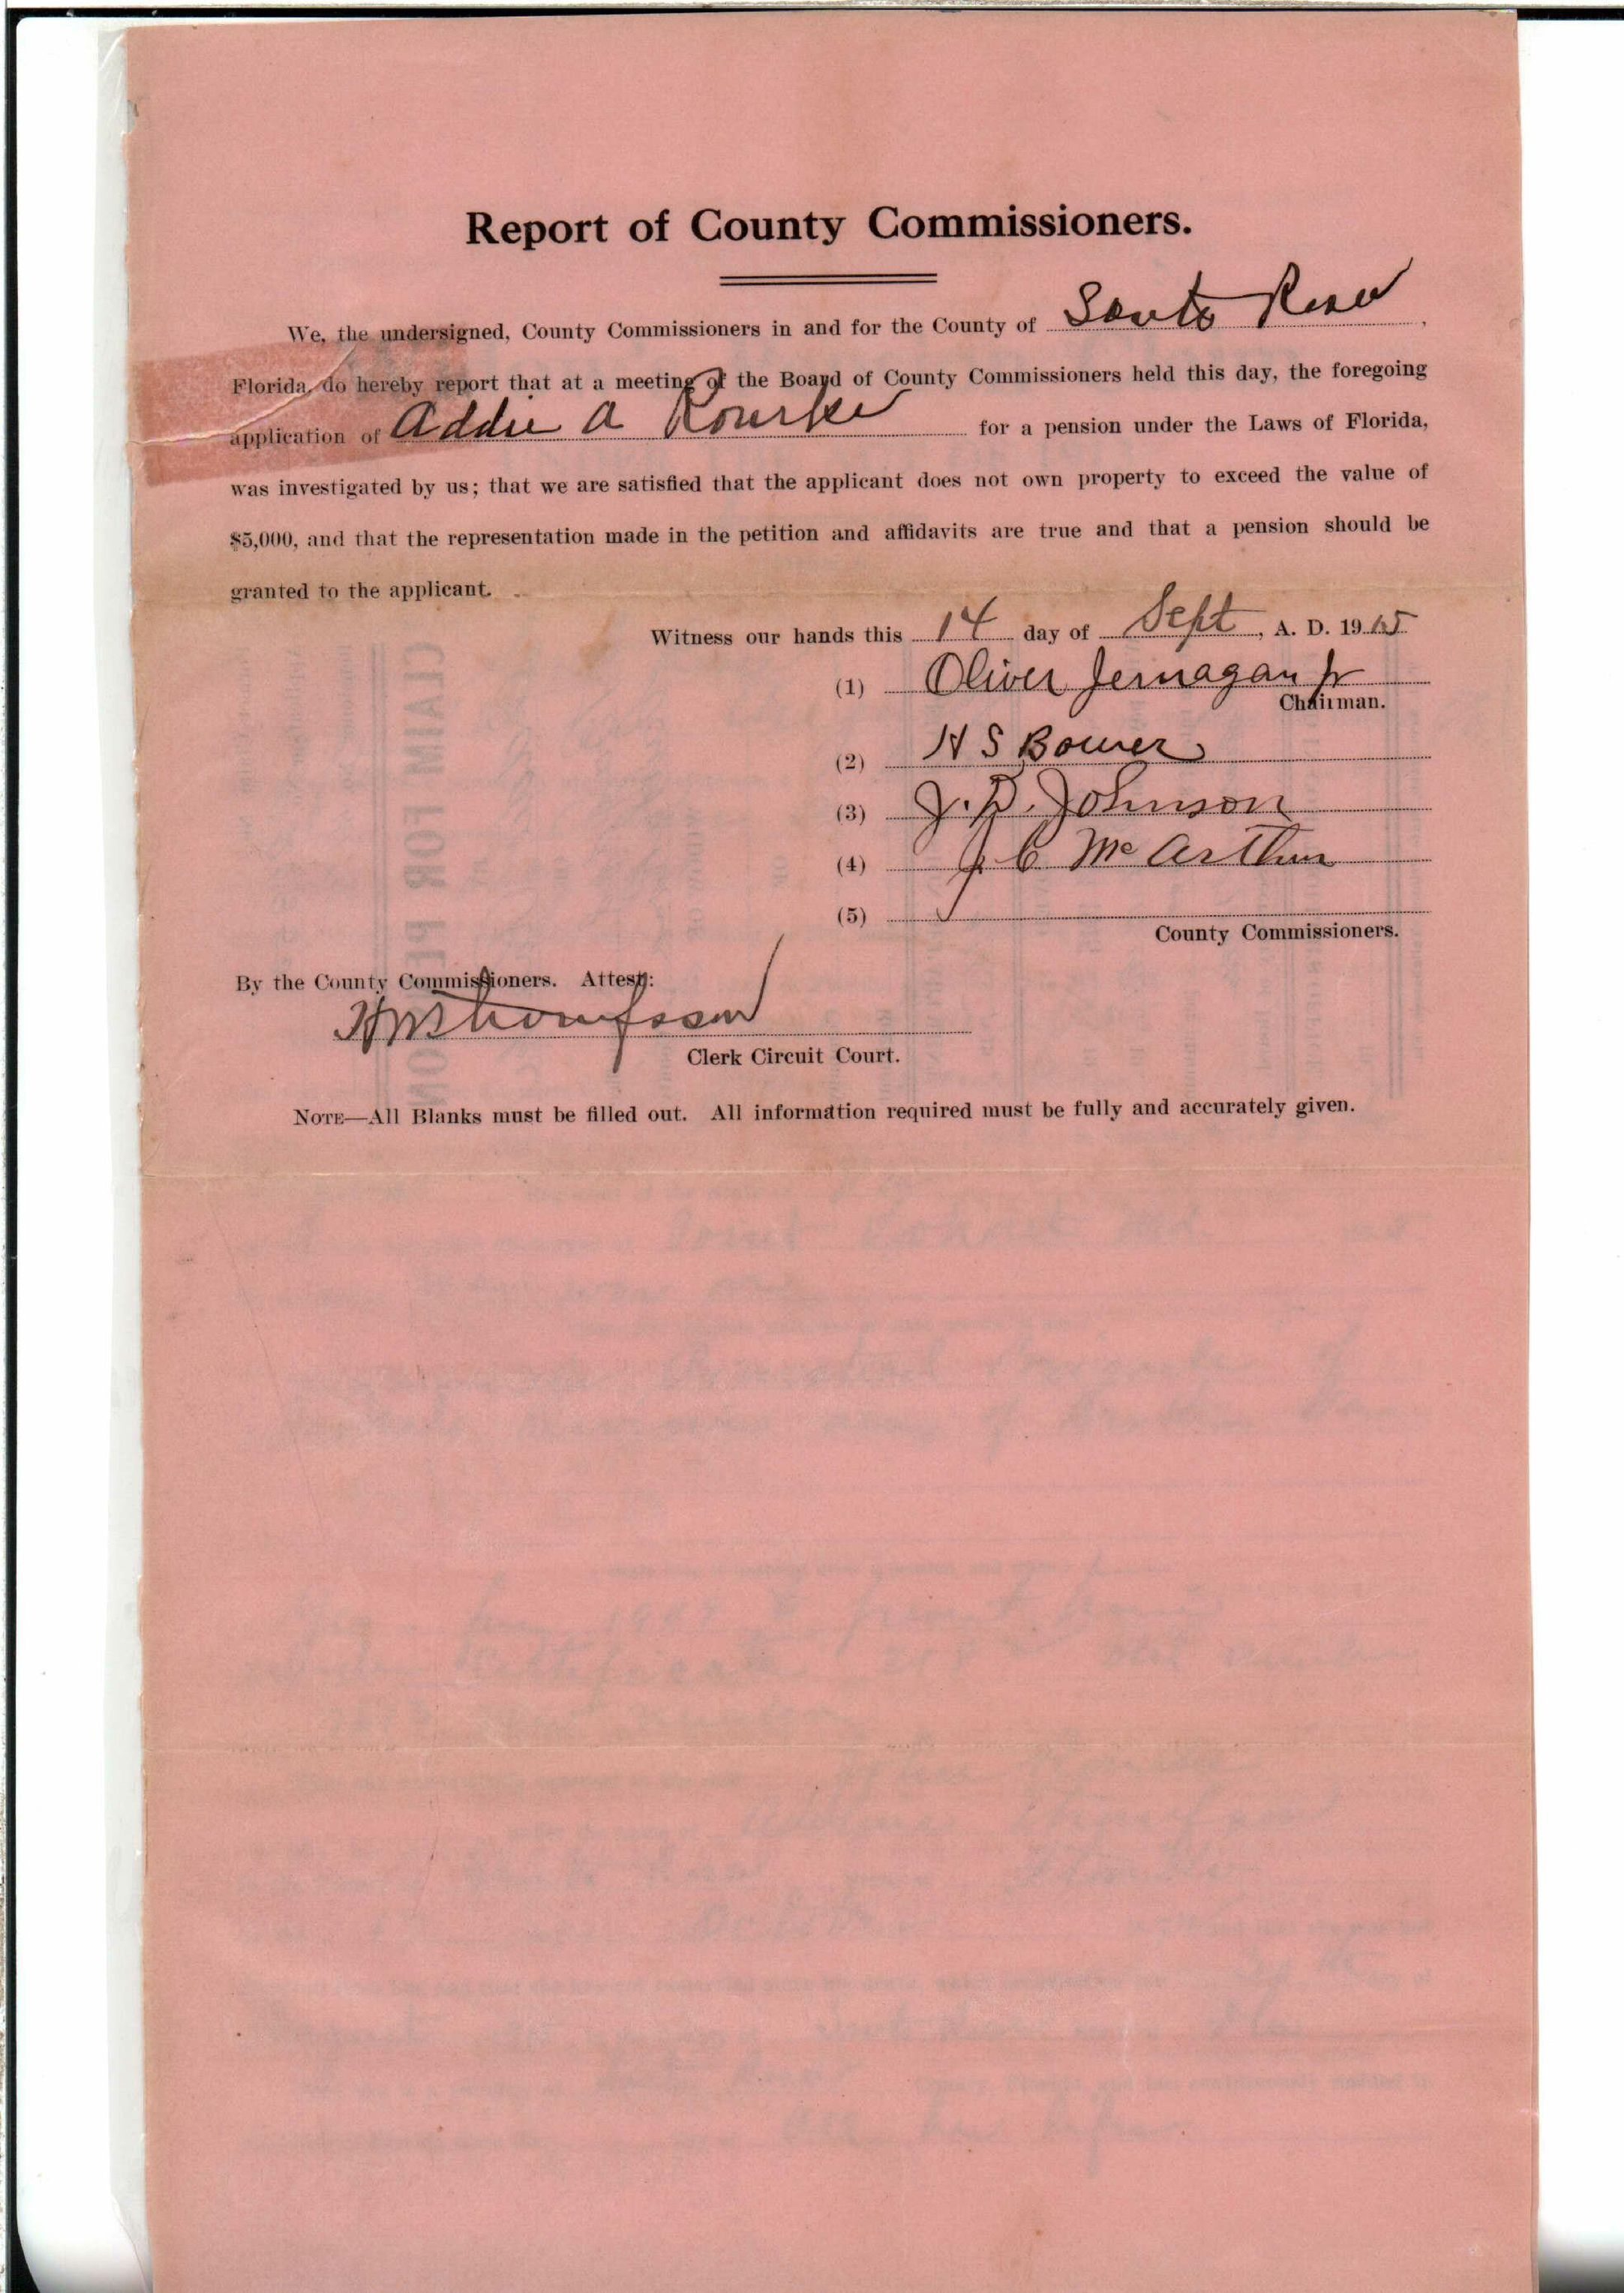 Report of County Commissioners.
We, the undersigned, County Commissioners in and for the County of Santa Rosa,
Florida, do hereby report that at a meeting of the Board of County Commissioners held this day, the foregoing
application of Addie A Rourke for a pension under the Laws of Florida,
was investigated by us; that we are satisfied that the applicant does not own property to exceed the value of
$5,000, and that the representation made in the petition and affidavits are true and that a pension should be
granted to the applicant.
Witness our hands this 14 day of Sept, A. D. 1915
(1) Oliver Jernagan Jr
Chairman.
(2) H S Bower
(3) J. D. Johnson
(4) J. C McArthur
(5)
County Commissioners.
By the County Commissioners. Attest:
Thompson
Clerk Circuit Court.
NOTE—All Blanks must be filled out. All information required must be fully and accurately given.